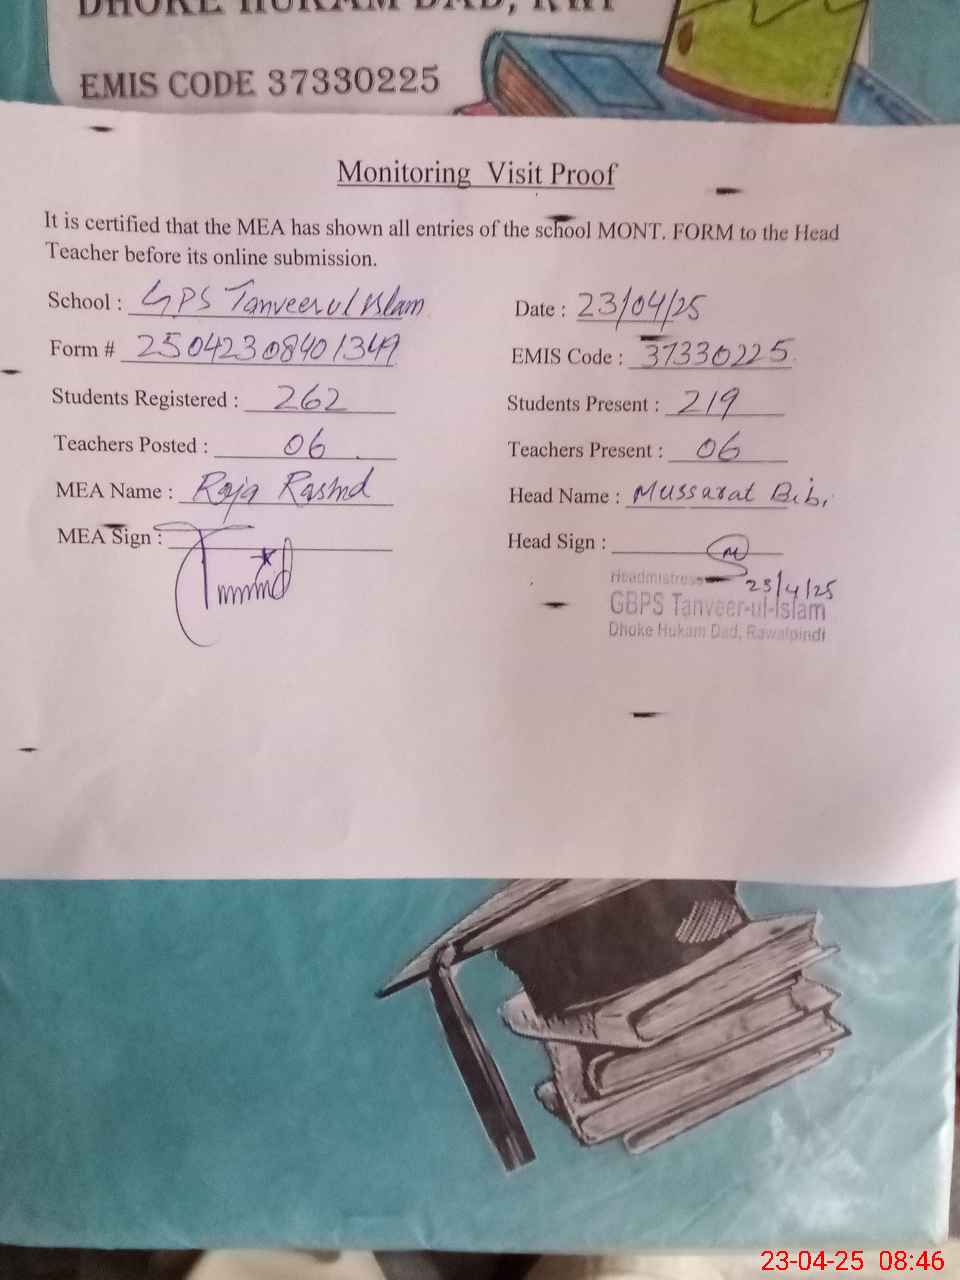 DHOKE HUKAM DAD, RWP
EMIS CODE 37330225
Monitoring Visit Proof
It is certified that the MEA has shown all entries of the school MONT. FORM to the Head
Teacher before its online submission.
School : GPS Tanveer ul Islam
Date : 23/04/25
Form # 25042308401349
EMIS Code : 37330225
Students Registered : 262
Students Present : 219
Teachers Posted : 06
Teachers Present : 06
MEA Name : Raja Rashid
Head Name : Mussarat Bibi
MEA Sign :
Head Sign :
Headmistress 23/4/25
GBPS Tanveer-ul-Islam
Dhoke Hukam Dad, Rawalpindi
23-04-25 08:46